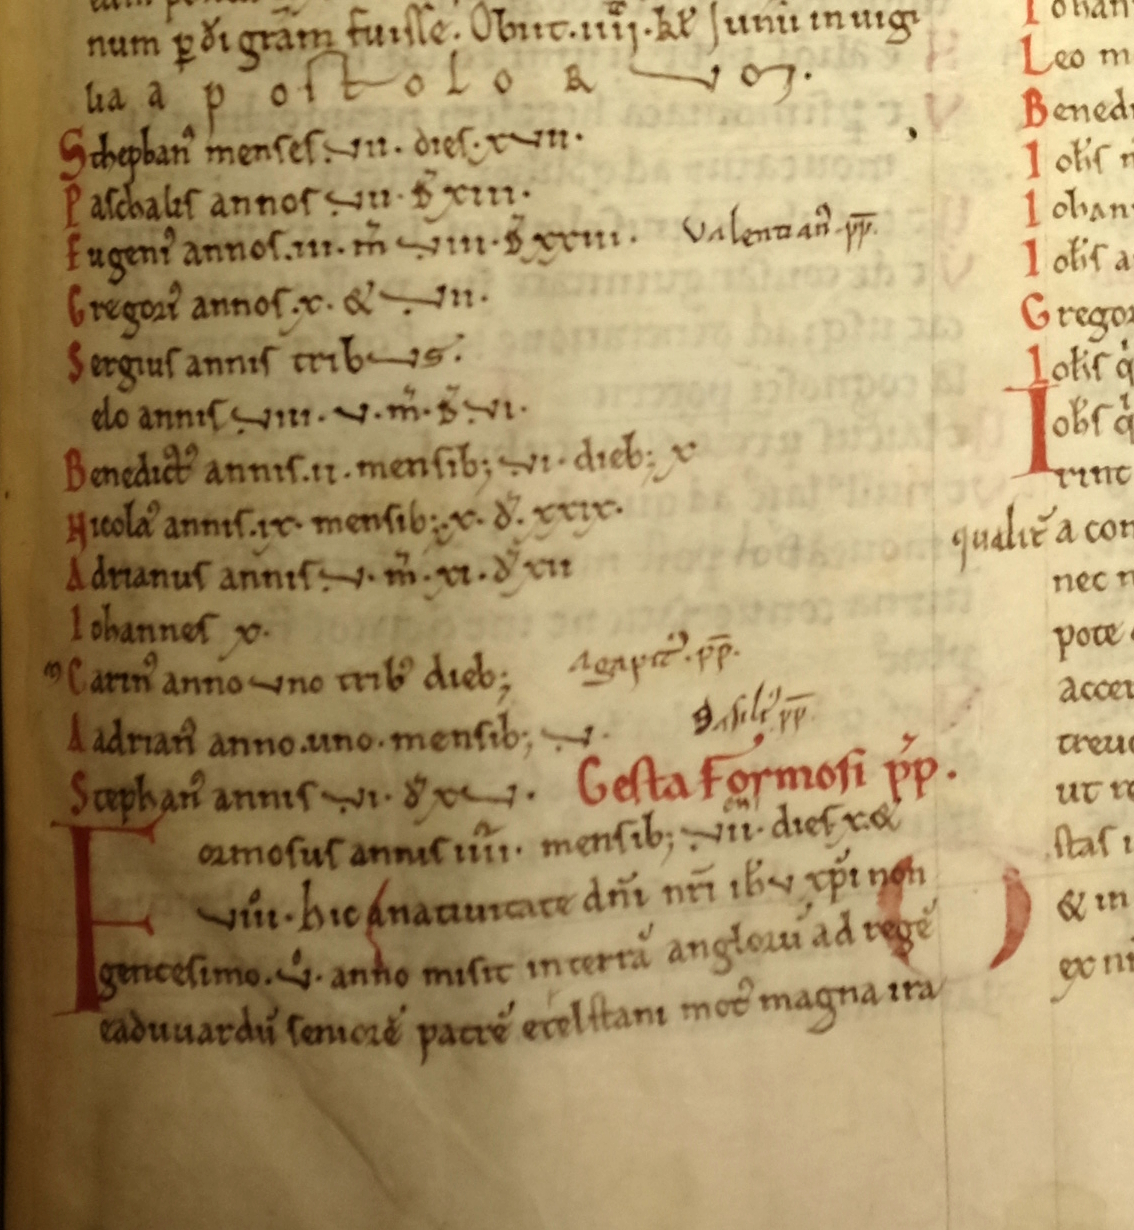 num p di gr̄am fuisse. Obiit .iiij. kł Junii in uigi
lia apostoloꝝ
Stephan' menses .vii. dies .xvii.
Paschalis annos vii. d̄ xiii.
Eugeni' annos .iii. m̄ viii. d̄ xxiii. Valentian' pp̄.
Gregori' annos .x. & vii.
Sergius annis tribus.
elo annis viii. v. m̄. d̄ vi.
Benedict' annis .ii. mensib; vi. dieb; x
Nicola' annis .ix. mensib; .x. d̄. xxix.
Adrianus annis v. m̄. xi. d̄ xii
Iohannes x.
Carin' anno uno trib' dieb; Agapit'. pp̄.
Aadrian' anno .uno. mensib; v. Basili' pp̄
Stephan' annis vi. d̄ xv. Gesta Formosi pp̄.
Formosus annis iiii. mensib; vii. dies x. &
viii. hic a natiuitate dn̄i nr̄i ih̄u xp̄i non
gentesimo. v. anno misit in terrā anglorū ad regē
eaduuardū seniorē patrē etelstani mot' magna ira
Iohan
Leo m
Bened
Ioh̄s
Iohan
Ioh̄s a
Gregor
Ioh̄s q
Ioh̄s q
rint
qualit' a con
nec
pote
acce
treuu
ut
stas
& in
ex ni